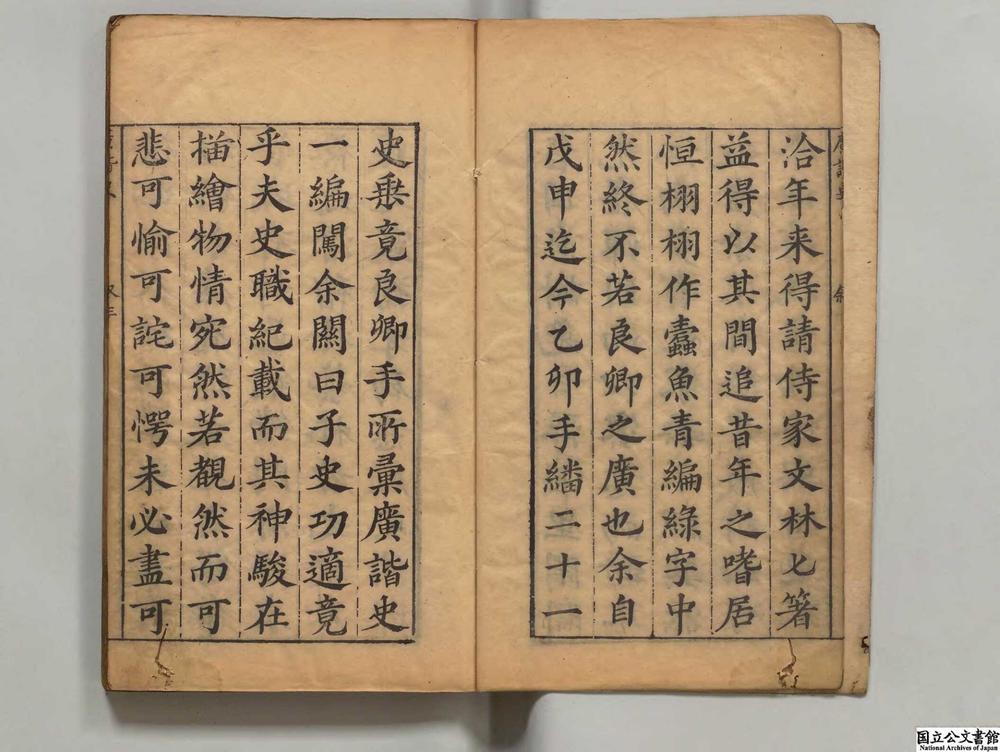 洽年来得請侍家文林七箸
益得以其間追昔年之嗜居
恒栩栩作蠹魚青編綠字中
然終不若良卿之廣也余自
戊申迄今乙卯手繙二十一
史乗竟良卿手所彙廣諧史
一編闖余關曰子史功適竟
乎夫史職紀載而其神駿在
描繪物情宛然若覩然而可
悲可愉可詫可愕未必盡可
国立公文書館
National Archives of Japan